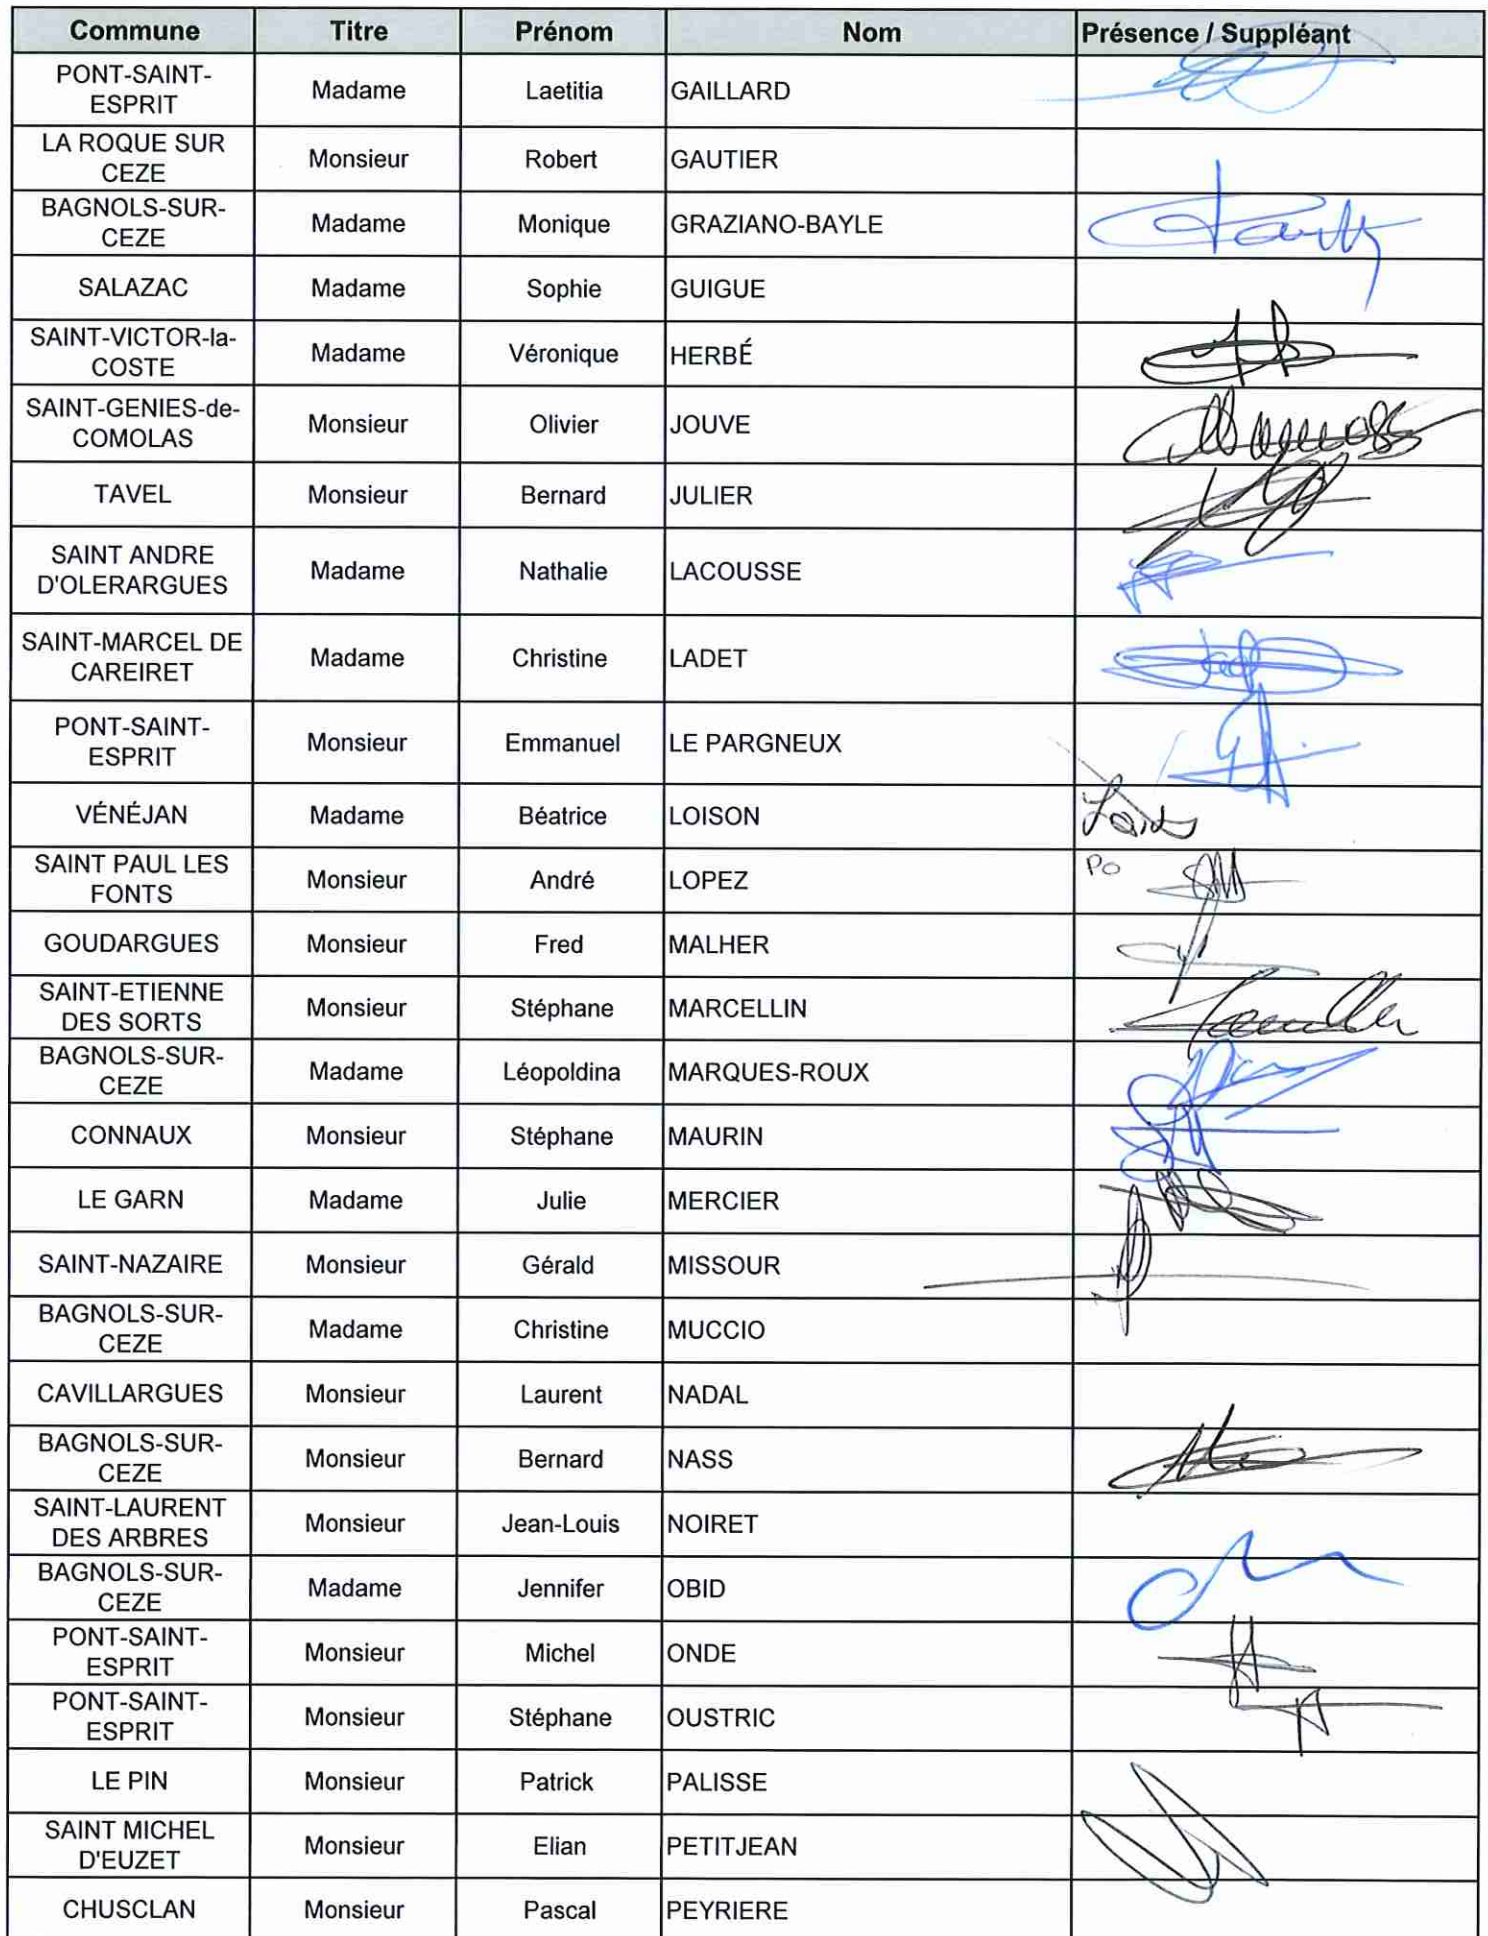 Commune Titre Prénom Nom Présence / Suppléant
PONT-SAINT-
ESPRIT Madame Laetitia GAILLARD
LA ROQUE SUR
CEZE Monsieur Robert GAUTIER
BAGNOLS-SUR-
CEZE Madame Monique GRAZIANO-BAYLE
SALAZAC Madame Sophie GUIGUE
SAINT-VICTOR-la-
COSTE Madame Véronique HERBÉ
SAINT-GENIES-de-
COMOLAS Monsieur Olivier JOUVE
TAVEL Monsieur Bernard JULIER
SAINT ANDRE
D'OLERARGUES Madame Nathalie LACOUSSE
SAINT-MARCEL DE
CAREIRET Madame Christine LADET
PONT-SAINT-
ESPRIT Monsieur Emmanuel LE PARGNEUX
VÉNÉJAN Madame Béatrice LOISON
SAINT PAUL LES
FONTS Monsieur André LOPEZ PO
GOUDARGUES Monsieur Fred MALHER
SAINT-ETIENNE
DES SORTS Monsieur Stéphane MARCELLIN
BAGNOLS-SUR-
CEZE Madame Léopoldina MARQUES-ROUX
CONNAUX Monsieur Stéphane MAURIN
LE GARN Madame Julie MERCIER
SAINT-NAZAIRE Monsieur Gérald MISSOUR
BAGNOLS-SUR-
CEZE Madame Christine MUCCIO
CAVILLARGUES Monsieur Laurent NADAL
BAGNOLS-SUR-
CEZE Monsieur Bernard NASS
SAINT-LAURENT
DES ARBRES Monsieur Jean-Louis NOIRET
BAGNOLS-SUR-
CEZE Madame Jennifer OBID
PONT-SAINT-
ESPRIT Monsieur Michel ONDE
PONT-SAINT-
ESPRIT Monsieur Stéphane OUSTRIC
LE PIN Monsieur Patrick PALISSE
SAINT MICHEL
D'EUZET Monsieur Elian PETITJEAN
CHUSCLAN Monsieur Pascal PEYRIERE